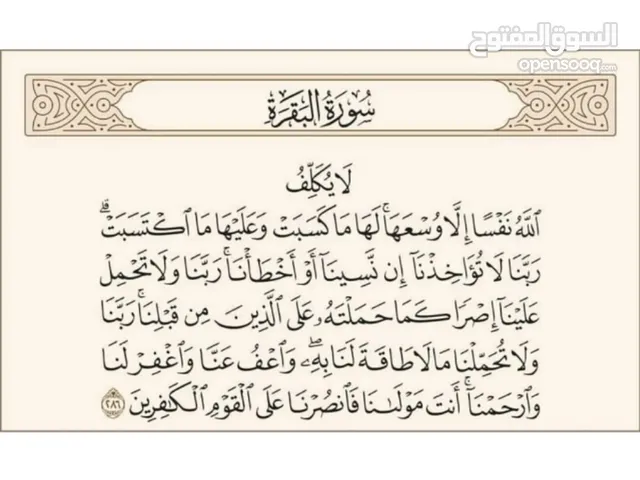 السوق المفتوح
opensooq.com
سُورَةُ البَقَرَةِ
لَا يُكَلِّفُ
ٱللَّهُ نَفۡسًا إِلَّا وُسۡعَهَاۚ لَهَا مَا كَسَبَتۡ وَعَلَيۡهَا مَا ٱكۡتَسَبَتۡۗ
رَبَّنَا لَا تُؤَاخِذۡنَآ إِن نَّسِينَآ أَوۡ أَخۡطَأۡنَاۚ رَبَّنَا وَلَا تَحۡمِلۡ
عَلَيۡنَآ إِصۡرٗا كَمَا حَمَلۡتَهُۥ عَلَى ٱلَّذِينَ مِن قَبۡلِنَاۚ رَبَّنَا
وَلَا تُحَمِّلۡنَا مَا لَا طَاقَةَ لَنَا بِهِۦۖ وَٱعۡفُ عَنَّا وَٱغۡفِرۡ لَنَا
وَٱرۡحَمۡنَآۚ أَنتَ مَوۡلَىٰنَا فَٱنصُرۡنَا عَلَى ٱلۡقَوۡمِ ٱلۡكَٰفِرِينَ ٢٨٦